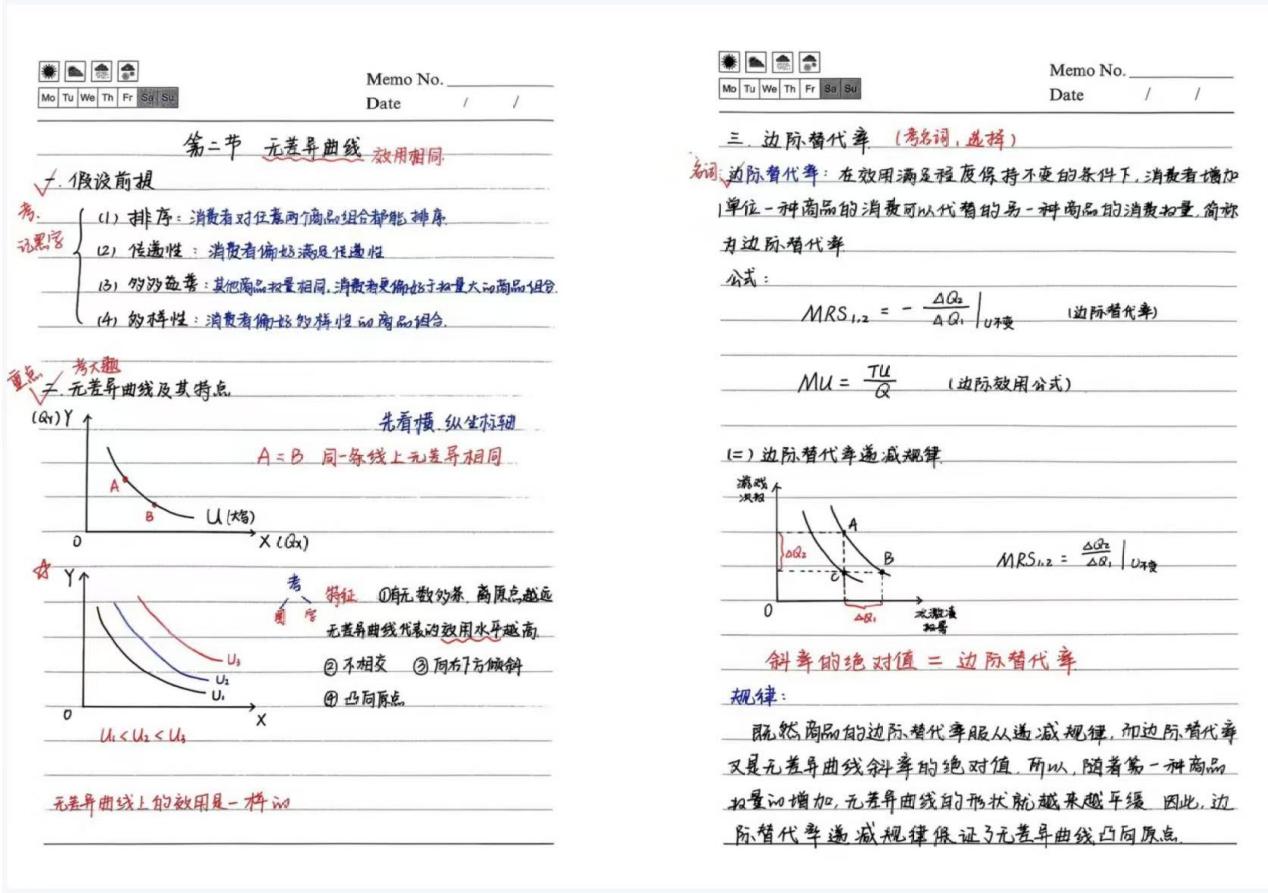 Memo No.
Mo Tu We Th Fr Sa Su
Date / /
第二节 无差异曲线 效用相同
一. 假设前提
考.
记黑字
(1) 排序：消费者对任意两个商品组合都能排序
(2) 传递性：消费者偏好满足传递性
(3) 多多益善：其他商品数量相同，消费者更偏好于数量大的商品组合.
(4) 多样性：消费者偏好多样性的商品组合.
重点 考大题
二. 无差异曲线及其特点
(QY) Y
先看横.纵坐标轴
A = B 同一条线上无差异相同
A
B
U
O
X (QX)
☆
Y
考
图 字
特征 ①有无数多条，离原点越远
无差异曲线代表的效用水平越高.
② 不相交 ③ 向右下方倾斜
④ 凸向原点.
U3
U2
U1
O
X
U1 < U2 < U3
无差异曲线上的效用是一样的
Memo No.
Mo Tu We Th Fr Sa Su
Date / /
三. 边际替代率 (考名词，选择)
名词 边际替代率：在效用满足程度保持不变的条件下，消费者增加
1单位一种商品的消费可以代替的另一种商品的消费数量，简称
为边际替代率
公式：
MRS1,2 = - ΔQ2/ΔQ1 | U不变 (边际替代率)
MU = TU/Q (边际效用公式)
(二) 边际替代率递减规律.
游戏
次数
A
ΔQ2
C
B
MRS1,2 = ΔQ2/ΔQ1 | U不变
O
ΔQ1
数量
斜率的绝对值 = 边际替代率
规律：
既然商品的边际替代率服从递减规律，而边际替代率
又是无差异曲线斜率的绝对值. 所以，随着第一种商品
数量的增加，无差异曲线的形状就越来越平缓 因此，边
际替代率递减规律保证了无差异曲线凸向原点.